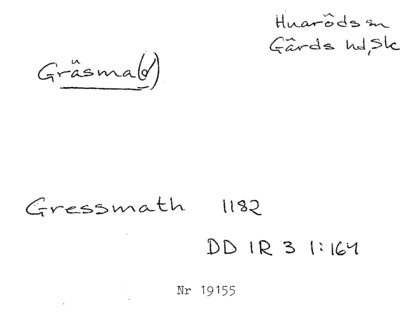 Huaröds sn
Gärds hd, Sk
Gräsma(d)
Gressmath 1182
DD 1R 3 1:164
Nr 19155